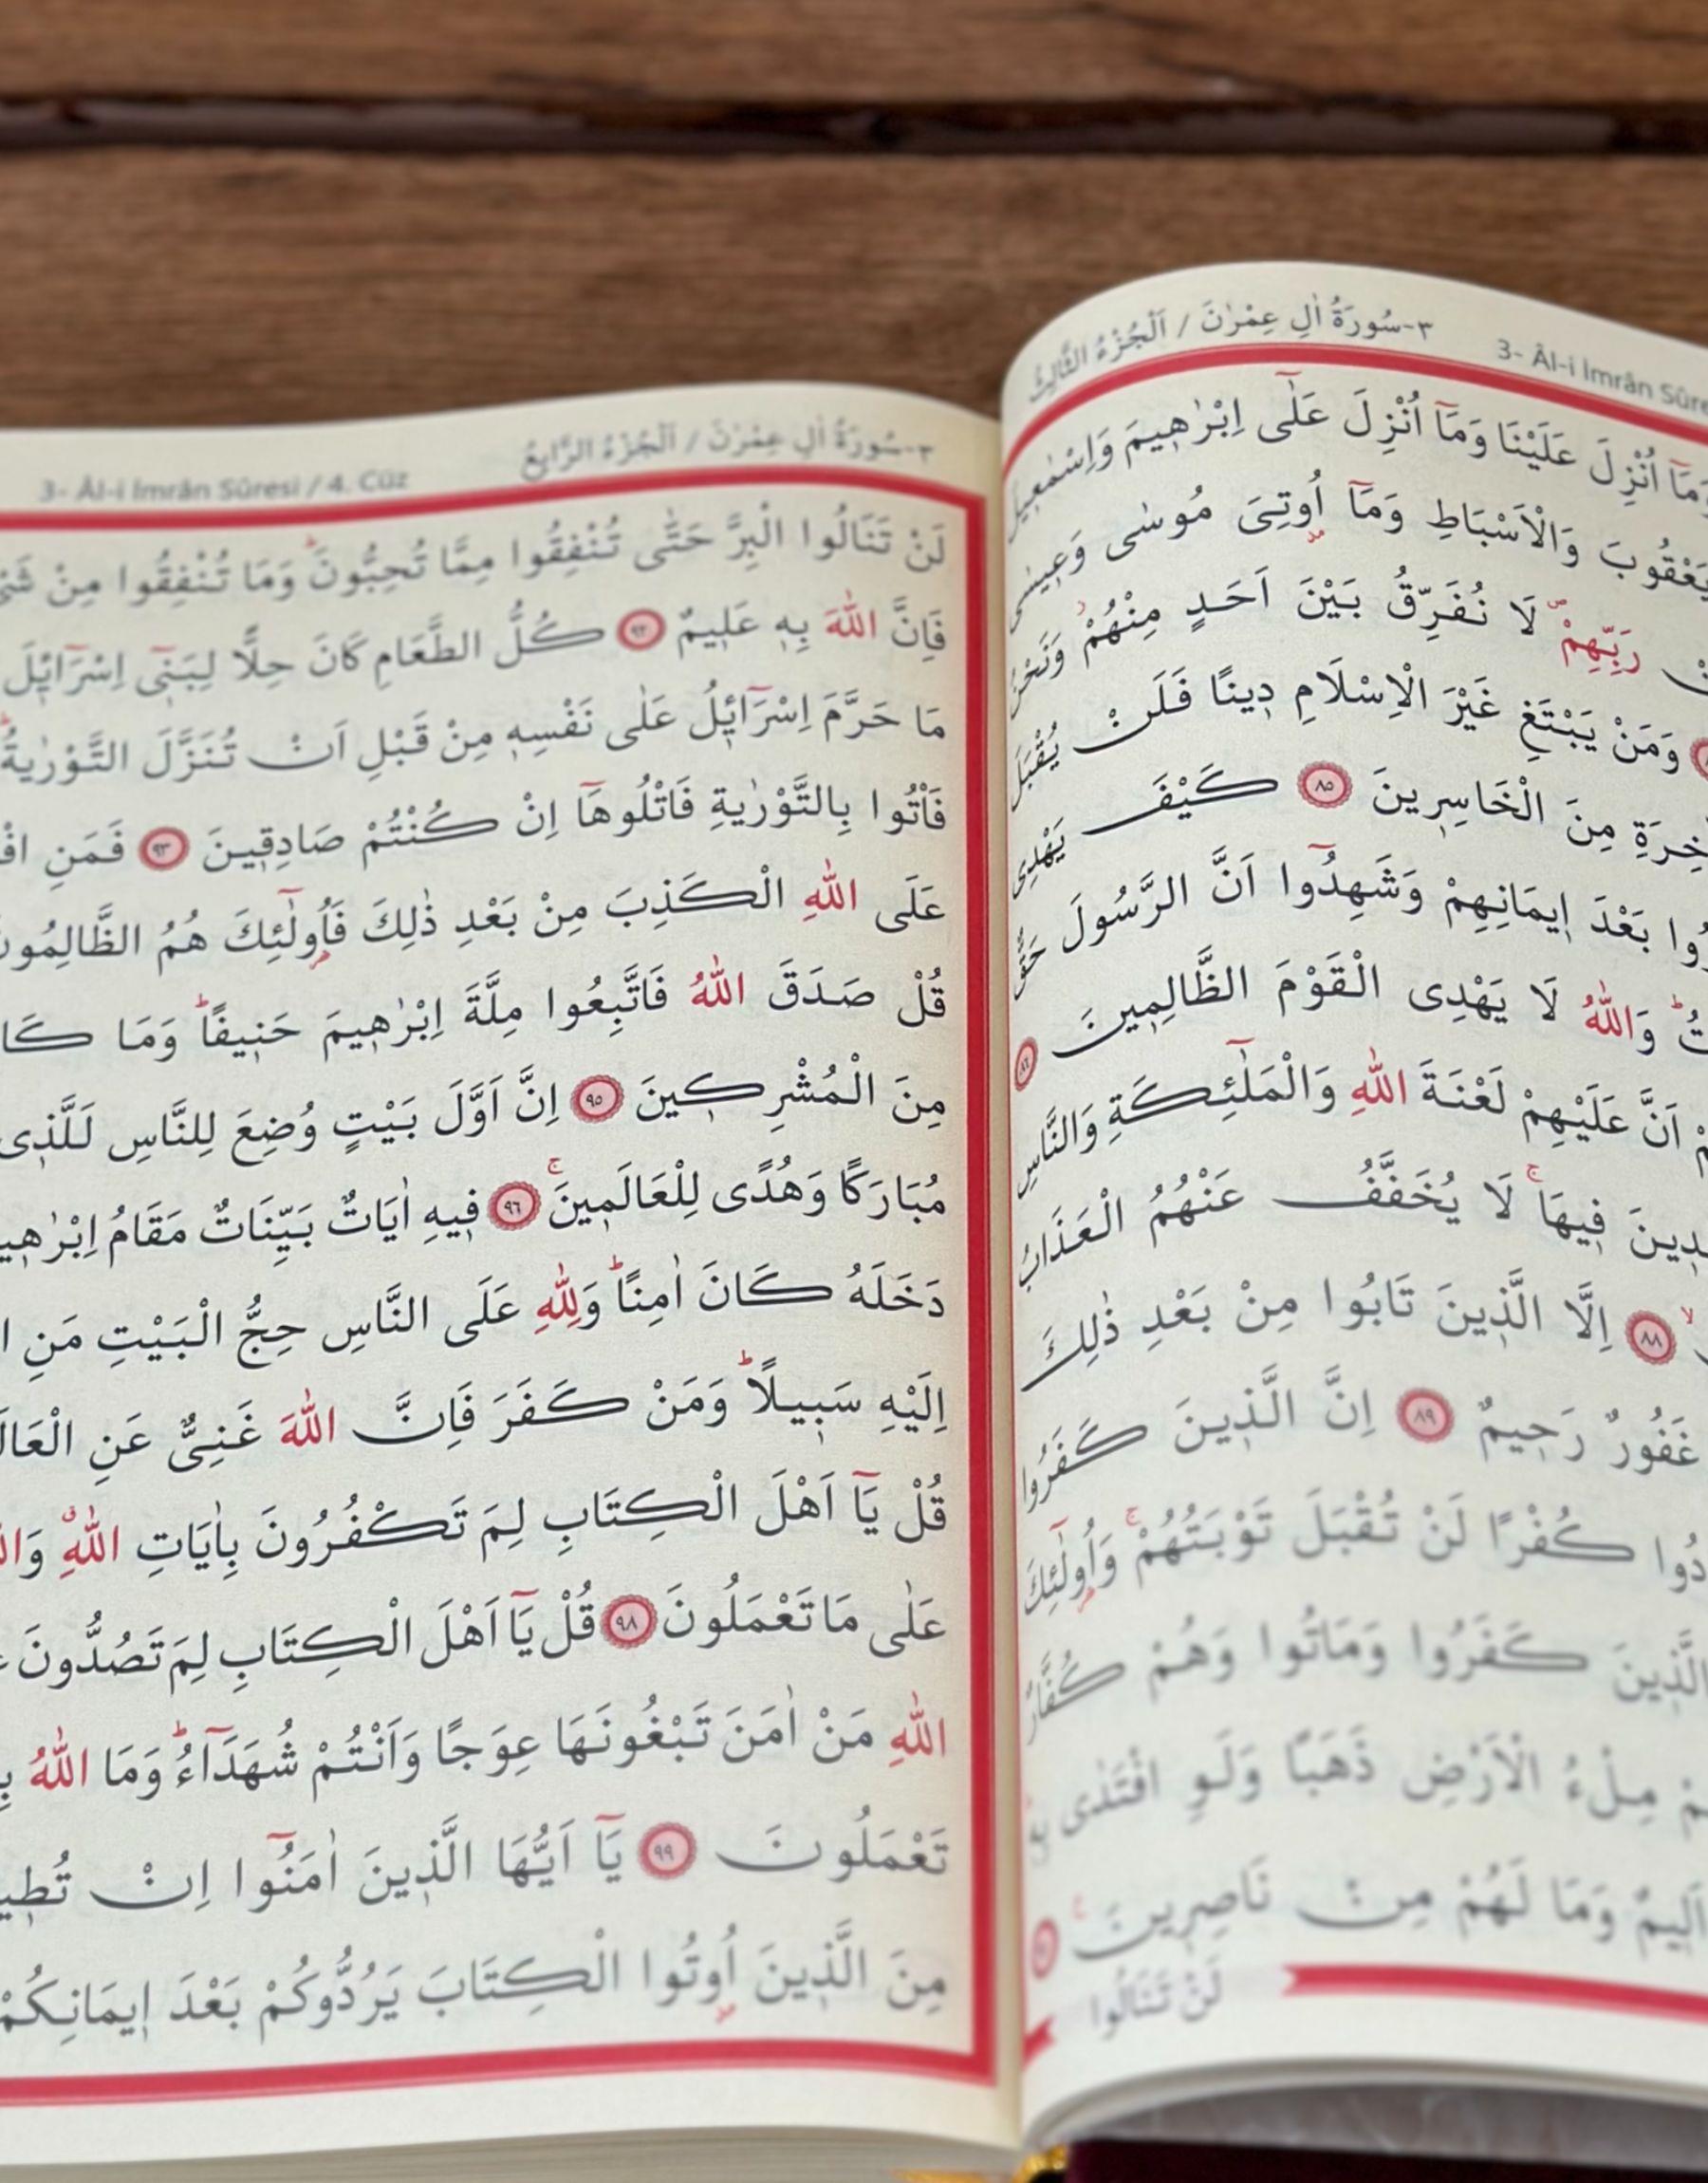 ٣-سُورَةُ اٰلِ عِمْرٰنَ / اَلْجُزْءُ الثَّالِثُ
3- Âl-i İmrân Sûre
وَمَٓا اُنْزِلَ عَلَيْنَا وَمَٓا اُنْزِلَ عَلٰٓى اِبْرٰه۪يمَ وَاِسْمٰع۪يلَ
يَعْقُوبَ وَالْاَسْبَاطِ وَمَٓا اُو۫تِيَ مُوسٰى وَع۪يسٰى
رَبِّهِمْۖ لَا نُفَرِّقُ بَيْنَ اَحَدٍ مِنْهُمْۘ وَنَحْنُ
وَمَنْ يَبْتَغِ غَيْرَ الْاِسْلَامِ د۪ينًا فَلَنْ يُقْبَلَ
مِنَ الْخَاسِر۪ينَ ﴿٨٥﴾ كَيْفَ يَهْدِي
بَعْدَ ا۪يمَانِهِمْ وَشَهِدُٓوا اَنَّ الرَّسُولَ حَقٌّ
وَاللّٰهُ لَا يَهْدِي الْقَوْمَ الظَّالِم۪ينَ ﴿٨٦﴾
اَنَّ عَلَيْهِمْ لَعْنَةَ اللّٰهِ وَالْمَلٰٓئِكَةِ وَالنَّاسِ
ف۪يهَاۚ لَا يُخَفَّفُ عَنْهُمُ الْعَذَابُ
﴿٨٨﴾ اِلَّا الَّذ۪ينَ تَابُوا مِنْ بَعْدِ ذٰلِكَ
غَفُورٌ رَح۪يمٌ ﴿٨٩﴾ اِنَّ الَّذ۪ينَ كَفَرُوا
كُفْرًا لَنْ تُقْبَلَ تَوْبَتُهُمْۚ وَاُو۬لٰٓئِكَ
الَّذ۪ينَ كَفَرُوا وَمَاتُوا وَهُمْ كُفَّارٌ
مِلْءُ الْاَرْضِ ذَهَبًا وَلَوِ افْتَدٰى بِه۪
اَل۪يمٌ وَمَا لَهُمْ مِنْ نَاصِر۪ينَۚ
لَنْ تَنَالُوا
٣-سُورَةُ اٰلِ عِمْرٰنَ / اَلْجُزْءُ الرَّابِعُ
3- Âl-i İmrân Sûresi / 4. Cüz
لَنْ تَنَالُوا الْبِرَّ حَتّٰى تُنْفِقُوا مِمَّا تُحِبُّونَۜ وَمَا تُنْفِقُوا مِنْ
فَاِنَّ اللّٰهَ بِه۪ عَل۪يمٌ ﴿٩٢﴾ كُلُّ الطَّعَامِ كَانَ حِلًّا لِبَن۪ٓي اِسْرَٓائ۪لَ
مَا حَرَّمَ اِسْرَٓائ۪لُ عَلٰى نَفْسِه۪ مِنْ قَبْلِ اَنْ تُنَزَّلَ التَّوْرٰيةُۜ
فَأْتُوا بِالتَّوْرٰيةِ فَاتْلُوهَٓا اِنْ كُنْتُمْ صَادِق۪ينَ ﴿٩٣﴾ فَمَنِ
عَلَى اللّٰهِ الْكَذِبَ مِنْ بَعْدِ ذٰلِكَ فَاُو۬لٰٓئِكَ هُمُ الظَّالِمُونَ
قُلْ صَدَقَ اللّٰهُ فَاتَّبِعُوا مِلَّةَ اِبْرٰه۪يمَ حَن۪يفًاۜ وَمَا كَا
مِنَ الْمُشْرِك۪ينَ ﴿٩٥﴾ اِنَّ اَوَّلَ بَيْتٍ وُضِعَ لِلنَّاسِ لَلَّذ۪ي
مُبَارَكًا وَهُدًى لِلْعَالَم۪ينَۚ ﴿٩٦﴾ ف۪يهِ اٰيَاتٌ بَيِّنَاتٌ مَقَامُ اِبْرٰه۪ي
دَخَلَهُ كَانَ اٰمِنًاۜ وَلِلّٰهِ عَلَى النَّاسِ حِجُّ الْبَيْتِ مَنِ
اِلَيْهِ سَب۪يلًاۜ وَمَنْ كَفَرَ فَاِنَّ اللّٰهَ غَنِيٌّ عَنِ الْعَالَ
قُلْ يَٓا اَهْلَ الْكِتَابِ لِمَ تَكْفُرُونَ بِاٰيَاتِ اللّٰهِۗ وَال
عَلٰى مَا تَعْمَلُونَ ﴿٩٨﴾ قُلْ يَٓا اَهْلَ الْكِتَابِ لِمَ تَصُدُّونَ
اللّٰهِ مَنْ اٰمَنَ تَبْغُونَهَا عِوَجًا وَاَنْتُمْ شُهَدَٓاءُۜ وَمَا اللّٰهُ
تَعْمَلُونَ ﴿٩٩﴾ يَٓا اَيُّهَا الَّذ۪ينَ اٰمَنُٓوا اِنْ تُط۪ي
مِنَ الَّذ۪ينَ اُو۫تُوا الْكِتَابَ يَرُدُّوكُمْ بَعْدَ ا۪يمَانِكُمْ